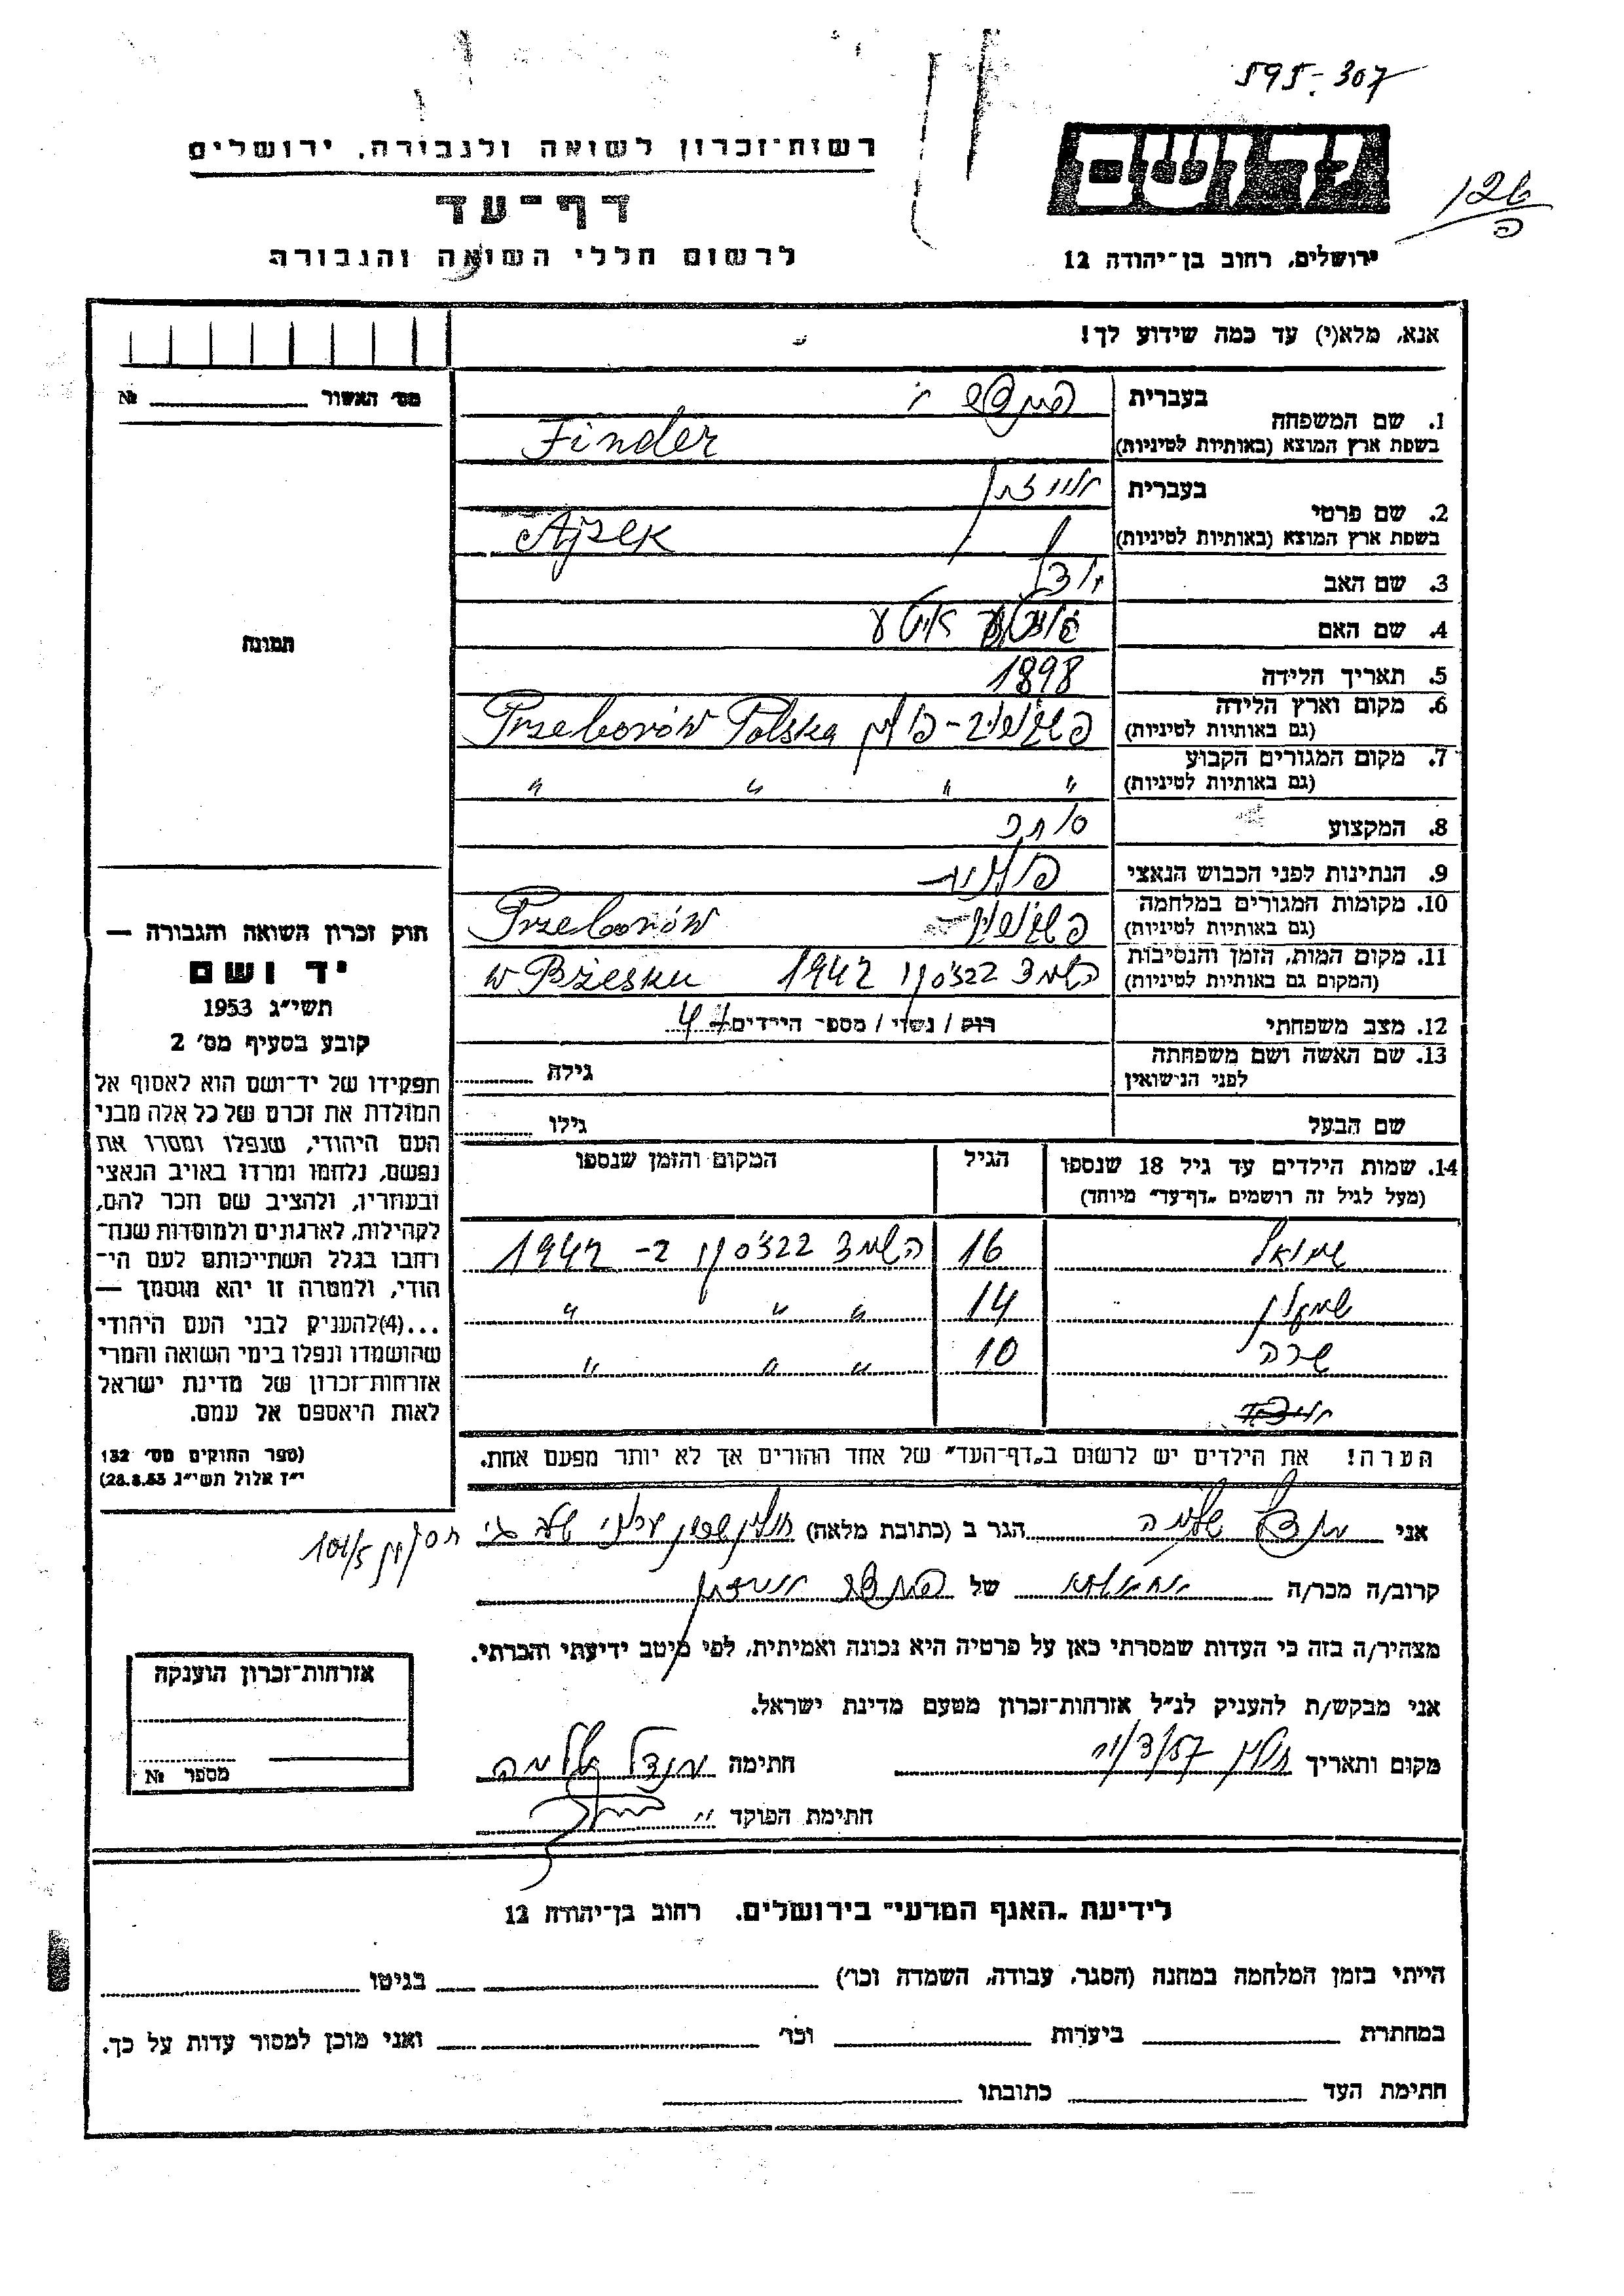 595-307
רשות־זכרון לשואה ולגבורה, ירושלים
דף־עד
לרשום חללי השואה והגבורה
ידושם
126
ירושלים, רחוב בן־יהודה 12
אנא, מלא(י) עד כמה שידוע לך!
מס׳ האשור № 
1. שם המשפחה
בעברית
בשפת ארץ המוצא (באותיות לטיניות)
Finder
2. שם פרטי
בעברית
בשפת ארץ המוצא (באותיות לטיניות)
Ajzek
3. שם האב
4. שם האם
5. תאריך הלידה 1898
6. מקום וארץ הלידה
(גם באותיות לטיניות)
Przeborów Polska פולין
7. מקום המגורים הקבוע
(גם באותיות לטיניות)
" " " "
8. המקצוע סוחר
9. הנתינות לפני הכבוש הנאצי פולנית
10. מקומות המגורים במלחמה
(גם באותיות לטיניות)
Przeborów
11. מקום המות, הזמן והנסיבות
(המקום גם באותיות לטיניות)
הושמד בבז'סקו 1942 w Bżesku
12. מצב משפחתי
רוק / נשוי / מספר הילדים 4
13. שם האשה ושם משפחתה
לפני הנישואין
גילה
שם הבעל
גילו
14. שמות הילדים עד גיל 18 שנספו
(מעל לגיל זה רושמים „דף־עד״ מיוחד)
הגיל
המקום והזמן שנספו
שמואל 16 הושמד בבז'סקו ב- 1942
14 " " "
שרה 10 " " "
הערה! את הילדים יש לרשום ב„דף־העד״ של אחד ההורים אך לא יותר מפעם אחת.
תמונה
חוק זכרון השואה והגבורה —
יד ושם
תשי״ג 1953
קובע בסעיף מס׳ 2
תפקידו של יד־ושם הוא לאסוף אל
המולדת את זכרם של כל אלה מבני
העם היהודי, שנפלו ומסרו את
נפשם, נלחמו ומרדו באויב הנאצי
ובעוזריו, ולהציב שם וזכר להם,
לקהילות, לארגונים ולמוסדות שנח־
רחבו בגלל השתייכותם לעם הי־
הודי, ולמטרה זו יהא מוסמך —
...(4)להעניק לבני העם היהודי
שהושמדו ונפלו בימי השואה והמרי
אזרחות־זכרון של מדינת ישראל
לאות היאספם אל עמם.
(ספר החוקים מס׳ 132
י״ז אלול תשי״ג 28.8.53)
אני מנדל שלמה הגר ב (כתובת מלאה) חולון
101/5
קרוב/ה מכר/ה של
מצהיר/ה בזה כי העדות שמסרתי כאן על פרטיה היא נכונה ואמיתית, לפי מיטב ידיעתי והכרתי.
אני מבקש/ת להעניק לנ״ל אזרחות־זכרון מטעם מדינת ישראל.
מקום ותאריך חולון חתימה מנדל שלמה
חתימת הפוקד
אזרחות־זכרון הוענקה
מספר №
לידיעת „האגף המדעי״ בירושלים, רחוב בן־יהודה 12
הייתי בזמן המלחמה במחנה (הסגר, עבודה, השמדה וכו׳) בגיטו
במחתרת ביערות וכו׳ ואני מוכן למסור עדות על כך.
חתימת העד כתובתו